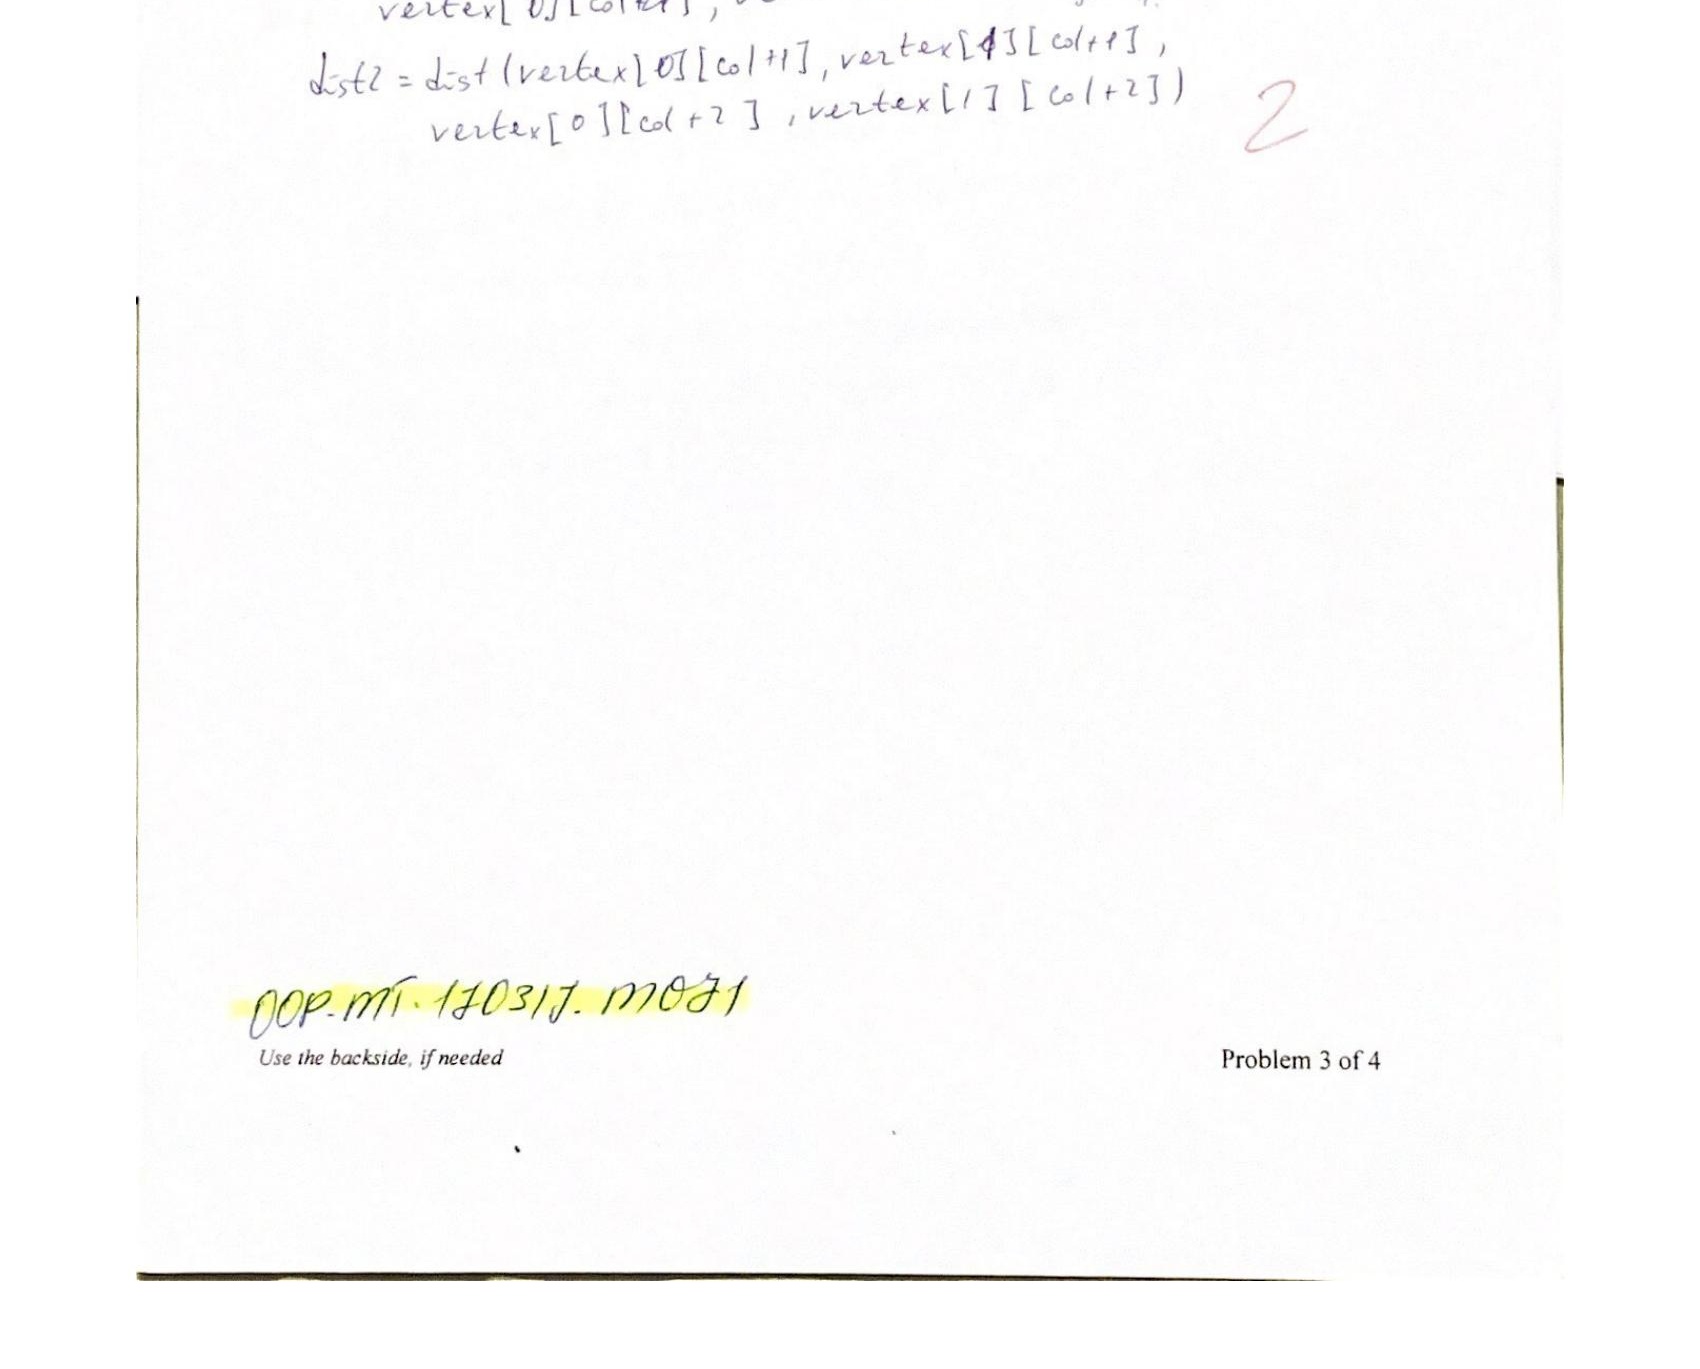 vertex[0][col+1],
dist2 = dist(vertex[0][col+1], vertex[1][col+1],
vertex[0][col+2], vertex[1][col+2])
2
OOP.MT.170317.M071
Use the backside, if needed
Problem 3 of 4